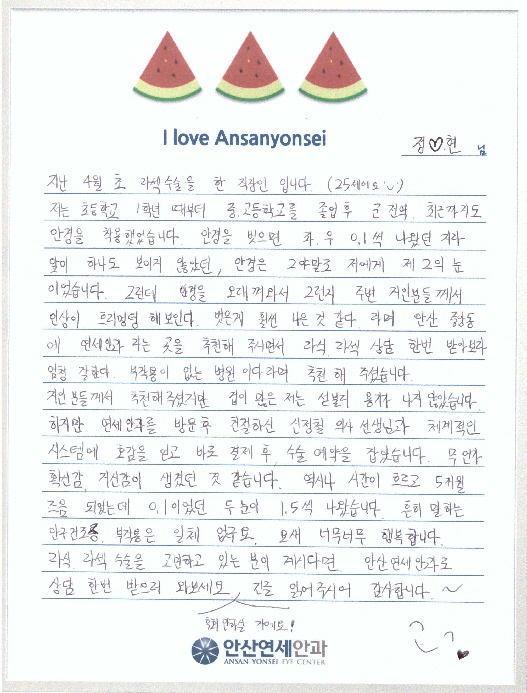 I love Ansanyonsei
정♡현 님
지난 4월 초 라섹수술을 한 직장인 입니다. (25세에요 ^^)
저는 초등학교 1학년 때부터 중,고등학교를 졸업 후 군 전역, 최근까지도
안경을 착용했었습니다. 안경을 벗으면 좌, 우 0.1씩 나왔던 저라
앞이 하나도 보이지 않았던, 안경은 그야말로 저에게 제 2의 눈
이었습니다. 그런데 안경을 오래 껴와서 그런지 주변 지인분들께서
인상이 흐리멍텅 해보인다. 벗은게 훨씬 나은 것 같다. 라며 안산 중앙동
에 연세안과 라는 곳을 추천해 주시면서 라식, 라섹 상담 한번 받아보라
엄청 잘한다. 부작용이 없는 병원 이다라며 추천 해 주셨습니다.
지인 분들께서 추천해주셨지만 겁이 많은 저는 섣불리 용기가 나지 않았습니다.
하지만 연세안과를 방문후 친절하신 의사 선생님과 체계적인
시스템에 호감을 얻고 바로 결제 후, 수술 예약을 잡았습니다. 무언가
확신감, 자신감이 생겼던 것 같습니다. 역시나 시간이 흐르고 5개월
즈음 되었는데 0.1이었던 두눈이 1.5씩 나왔습니다. 흔히 말하는
안구건조증, 부작용은 일체 없구요. 요새 너무너무 행복합니다.
라식, 라섹 수술을 고민하고 있는 분이 계시다면 안산연세안과로
상담 한번 받으러 와보세요, 긴글 읽어주시어 감사합니다. ~
후회 안하실 거에요!
안산연세안과
ANSAN YONSEI EYE CENTER